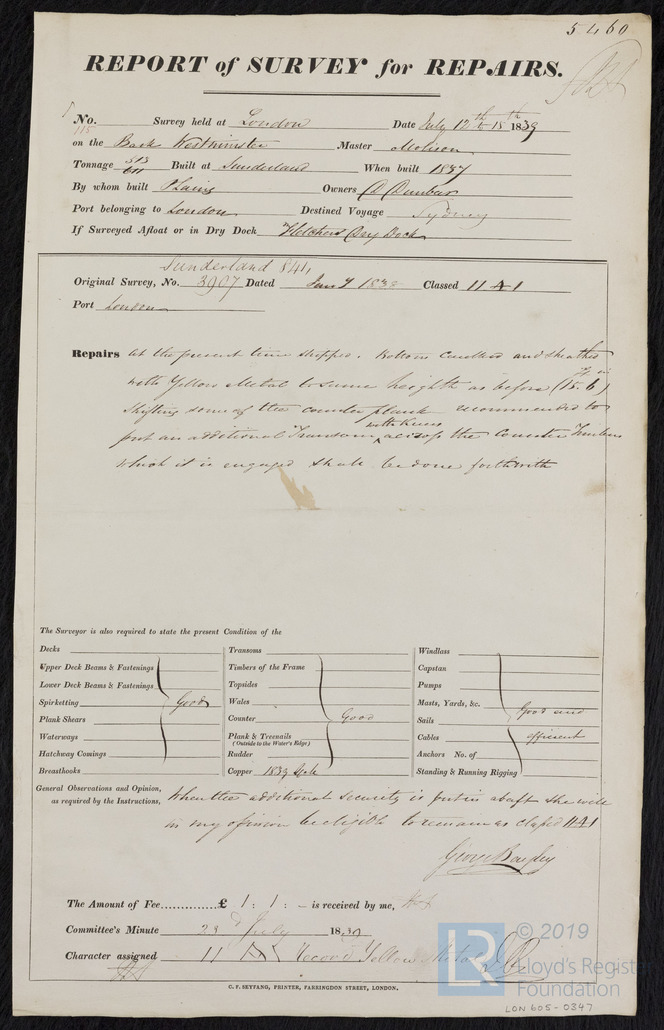 5460
REPORT of SURVEY for REPAIRS.
No. 115 Survey held at London Date July 12th & 15th 1839
on the Bark Westminster Master Molison
Tonnage 513/611 Built at Sunderland When built 1837
By whom built P Laing Owners D Dunbar
Port belonging to London Destined Voyage Sydney
If Surveyed Afloat or in Dry Dock Fletchers Dry Dock
Sunderland 841,
Original Survey, No. 3907 Dated Jany 1838 Classed 11 A 1
Port London
Repairs at the present time stripped. Bottom caulked and sheathed
ft in
with Yellow Metal to same heighth as before (15.6)
Shifting some of the counter plank recommended to
with knees
put an additional Transom, the Counter Timbers
which it is engaged shall be done forthwith
The Surveyor is also required to state the present Condition of the
Decks Transoms Windlass
Upper Deck Beams & Fastenings Timbers of the Frame Capstan
Lower Deck Beams & Fastenings Topsides Pumps
Spirketting Good Wales Masts, Yards, &c.
Plank Shears Counter Good Sails Good and
Waterways Plank & Treenails (Outside to the Water's Edge) Cables efficient
Hatchway Comings Rudder Anchors No. of
Breasthooks Copper 1839 Standing & Running Rigging
General Observations and Opinion, When the additional security is put in abaft she will
as required by the Instructions, in my opinion be eligible to remain as classed 11 A 1
George Bayley
The Amount of Fee.............£ 1 : 1 : - is received by me,
Committee's Minute 23d July 1839
Character assigned 11 A 1 Record Yellow Metal
C. F. SEYFANG, PRINTER, FARRINGDON STREET, LONDON.
LR © 2019
Lloyd's Register
Foundation
LON 605-0347